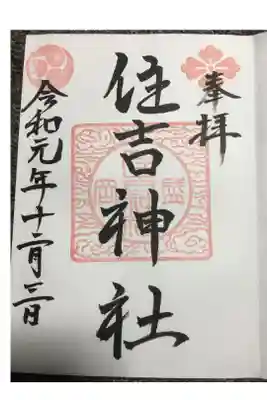 奉拝
住吉神社
令和元年十二月三日